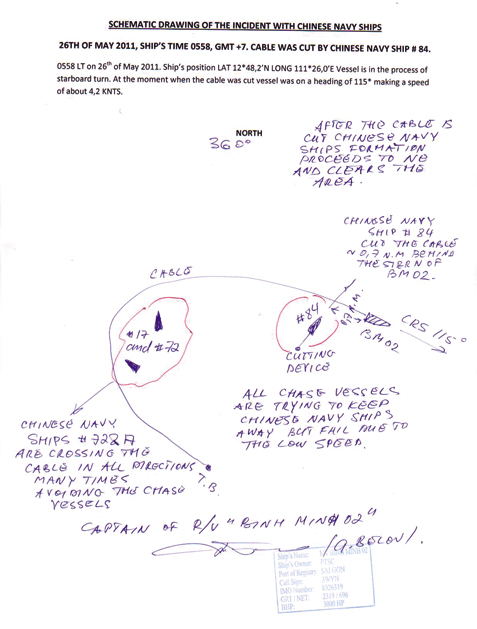 SCHEMATIC DRAWING OF THE INCIDENT WITH CHINESE NAVY SHIPS
26TH OF MAY 2011, SHIP'S TIME 0558, GMT +7. CABLE WAS CUT BY CHINESE NAVY SHIP # 84.
0558 LT on 26th of May 2011. Ship's position LAT 12*48,2'N LONG 111*26,0'E Vessel is in the process of
starboard turn. At the moment when the cable was cut vessel was on a heading of 115* making a speed
of about 4,2 KNTS.
NORTH
360°
AFTER THE CABLE IS
CUT CHINESE NAVY
SHIPS FORMATION
PROCEEDS TO NE
AND CLEARS THE
AREA.
CHINESE NAVY
SHIP # 84
CUT THE CABLE
~ 0,7 N.M BEHIND
THE STERN OF
BM 02.
CABLE
#17
and #72
#84
N.M.
BM 02
CRS 115°
CUTTING
DEVICE
ALL CHASE VESSELS
ARE TRYING TO KEEP
CHINESE NAVY SHIPS
AWAY BUT FAIL DUE TO
THE LOW SPEED.
CHINESE NAVY
SHIPS
ARE CROSSING THE
CABLE IN ALL DIRECTIONS
MANY TIMES
AVOIDING THE CHASE
VESSELS
T.B.
CAPTAIN OF R/V "BINH MINH 02"
Ship's Name: BINH MINH 02
Ship's Owner: PTSC
Port of Registry: SAI GON
Call Sign:
IMO Number:
GRT / NET:
BHP: